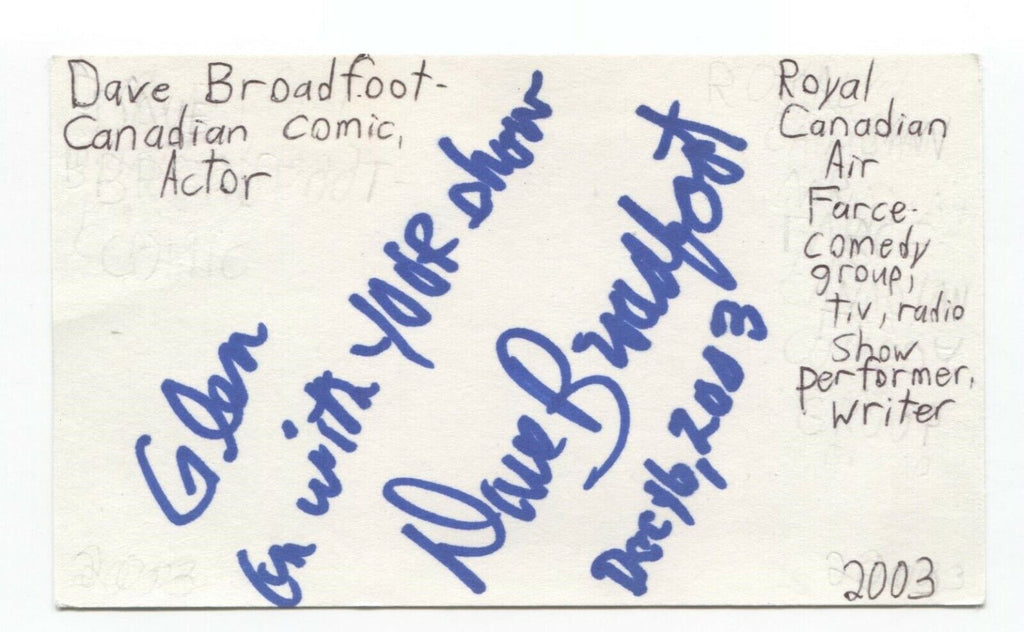 Dave Broadfoot-
Canadian comic,
Actor
Glen
On with YOUR show
Dave Broadfoot
Dec 16, 2003
Royal
Canadian
Air
Farce-
comedy
group,
t.v, radio
show
performer,
writer
2003